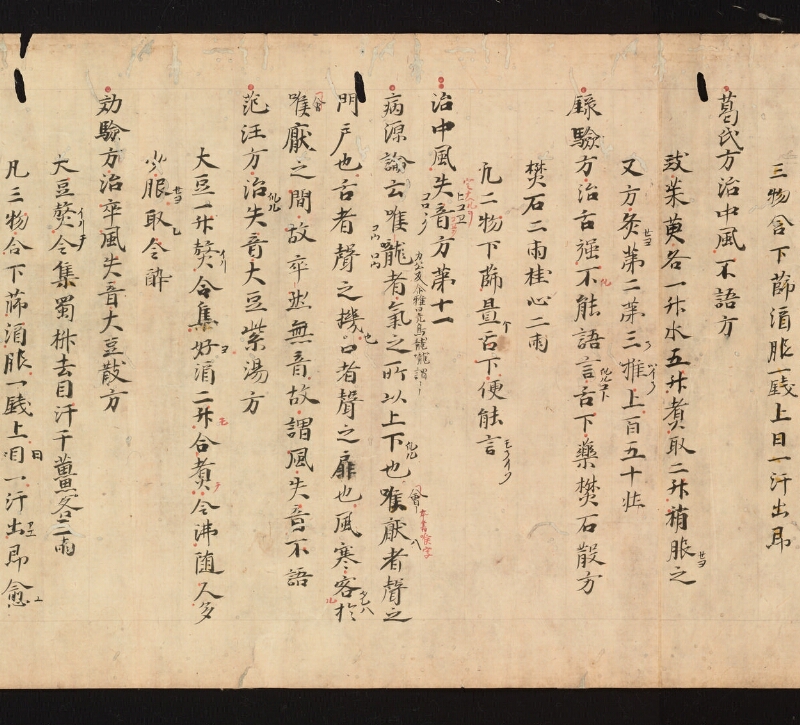 三物合下篩酒服一錢上日一汗出即
葛氏方治中風不語方
豉茱萸各一升水五升煮取二升稍服之
又方灸第二第三椎上百五十壯
錄驗方治舌強不能語言舌下藥樊石散方
樊石二兩桂心二兩
凡二物下篩置舌下便能言
治中風失音方第十一
病源論云喉嚨者氣之所以上下也喉厭者聲之
門戶也舌者聲之機口者聲之扉也風寒客於
喉厭之間故卒然無音故謂風失音不語
范汪方治失音大豆紫湯方
大豆一升熬令焦好酒二升合煮令沸随人多
少服取令醉
効驗方治卒風失音大豆散方
大豆熬令焦蜀椒去目汗干薑各三兩
凡三物合下篩酒服一錢上日一汗出即愈